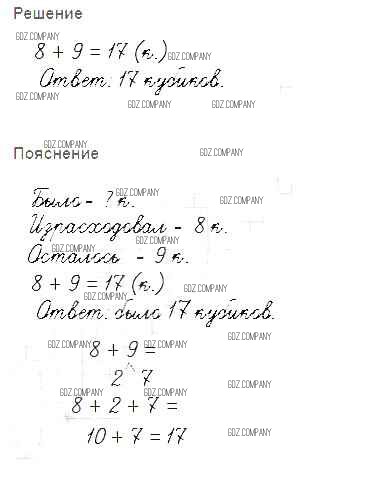 Решение
GDZ.COMPANY
8 + 9 = 17 (к.) GDZ.COMPANY
Ответ: 17 кубиков.
GDZ.COMPANY GDZ.COMPANY GDZ.COMPANY
GDZ.COMPANY
Пояснение GDZ.COMPANY
GDZ.COMPANY
Было - ? к. GDZ.COMPANY
Израсходовал - 8 к.
GDZ.COMPANY
GDZ.COMPANY
Осталось - 9 к.
8 + 9 = 17 (к.) GDZ.COMPANY
GDZ.COMPANY
Ответ: было 17 кубиков.
GDZ.COMPANY
GDZ.COMPANY 8 + 9 = GDZ.COMPANY
2 7 GDZ.COMPANY
GDZ.COMPANY GDZ.COMPANY
8 + 2 + 7 =
10 + 7 = 17 GDZ.COMPANY